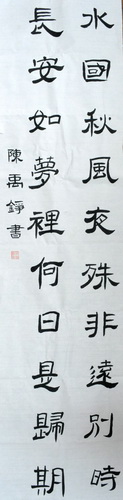 水國秋風夜殊非遠別時
長安如夢裡何日是歸期
陳禹錚書